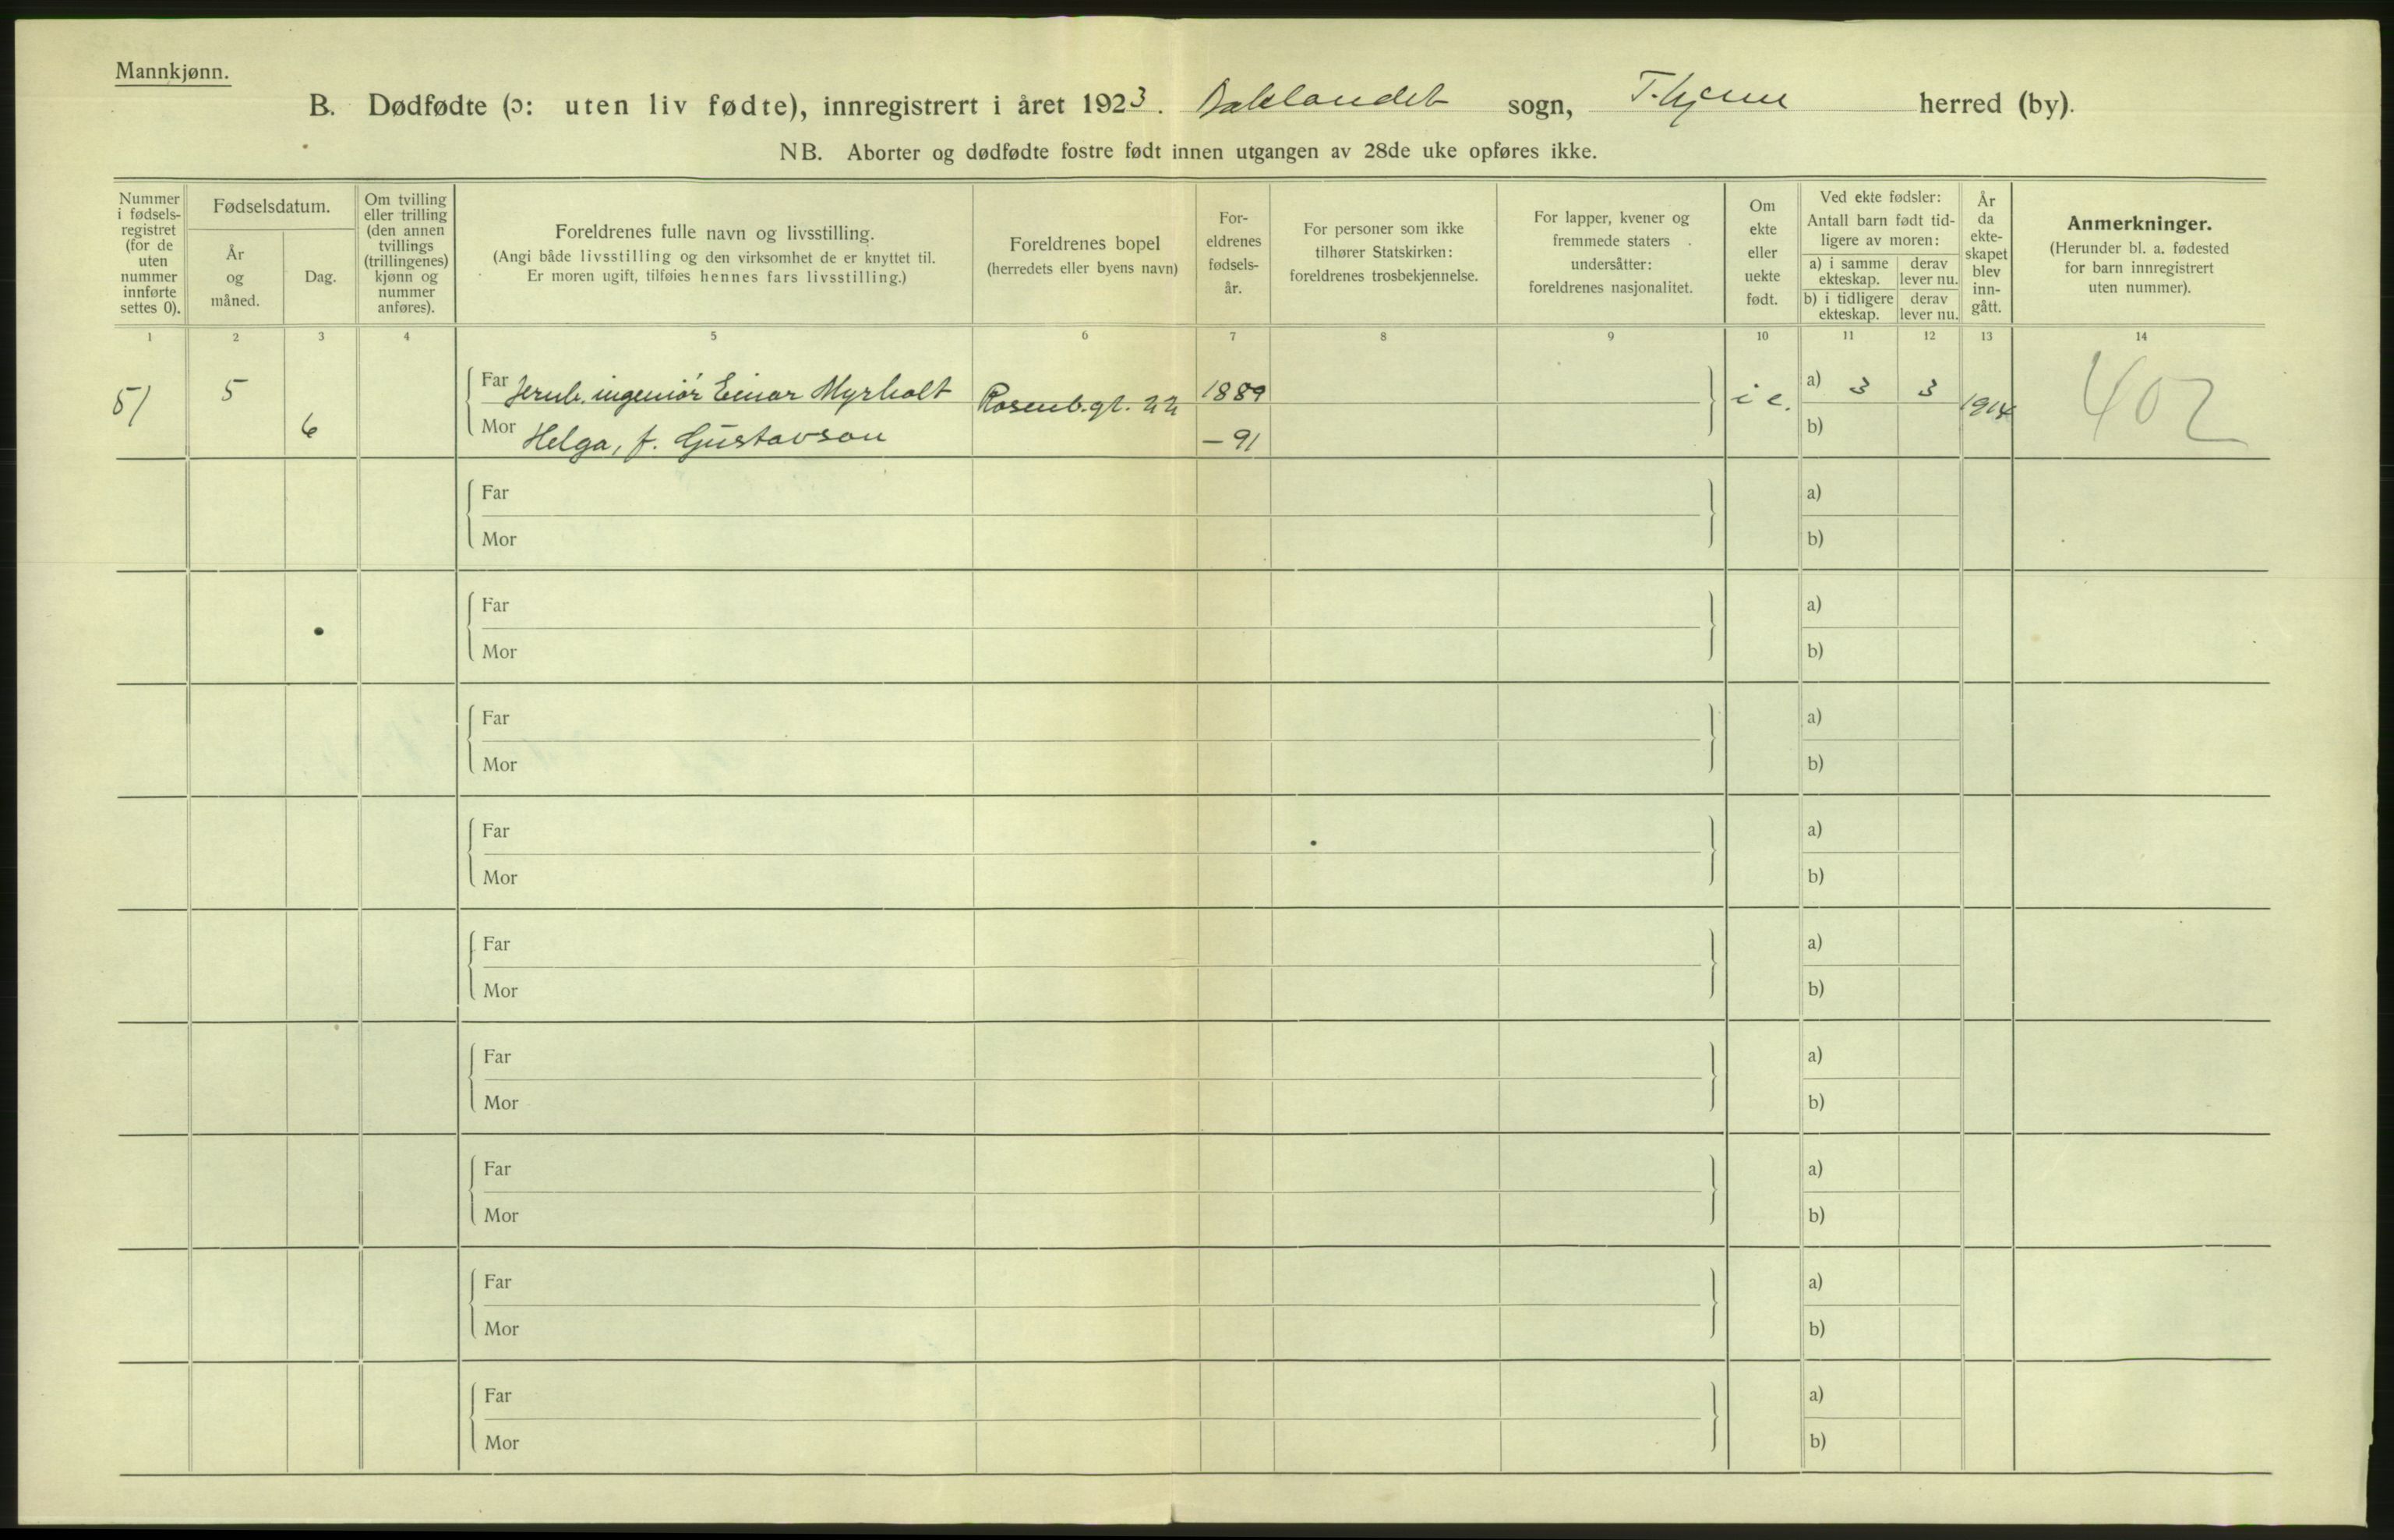 Mannkjønn.
B. Dødfødte (ɔ: uten liv fødte), innregistrert i året 1923. Baklandet sogn, T.hjem herred (by).
NB. Aborter og dødfødte fostre født innen utgangen av 28de uke opføres ikke.
Nummer
i fødsels-
registret
(for de
uten
nummer
innførte
settes 0).
Fødselsdatum.
År
og
måned.
Dag.
Om tvilling
eller trilling
(den annen
tvillings
(trillingenes)
kjønn og
nummer
anføres).
Foreldrenes fulle navn og livsstilling.
(Angi både livsstilling og den virksomhet de er knyttet til.
Er moren ugift, tilføies hennes fars livsstilling.)
Foreldrenes bopel
(herredets eller byens navn)
For-
eldrenes
fødsels-
år.
For personer som ikke
tilhører Statskirken:
foreldrenes trosbekjennelse.
For lapper, kvener og
fremmede staters
undersåtter:
foreldrenes nasjonalitet.
Om
ekte
eller
uekte
født.
Ved ekte fødsler:
Antall barn født tid-
ligere av moren:
a) i samme
ekteskap.
derav
lever nu.
b) i tidligere
ekteskap.
derav
lever nu.
År
da
ekte-
skapet
blev
inn-
gått.
Anmerkninger.
(Herunder bl. a. fødested
for barn innregistrert
uten nummer).
1 2 3 4 5 6 7 8 9 10 11 12 13 14
51 5 6 Far Jernb. ingeniør Einar Myrholt Rosenb.gt. 22 1889 i e. a) 3 3 1914 402
Mor Helga, f. Gustavson - 91 b)
Far a)
Mor b)
Far a)
Mor b)
Far a)
Mor b)
Far a)
Mor b)
Far a)
Mor b)
Far a)
Mor b)
Far a)
Mor b)
Far a)
Mor b)
Far a)
Mor b)